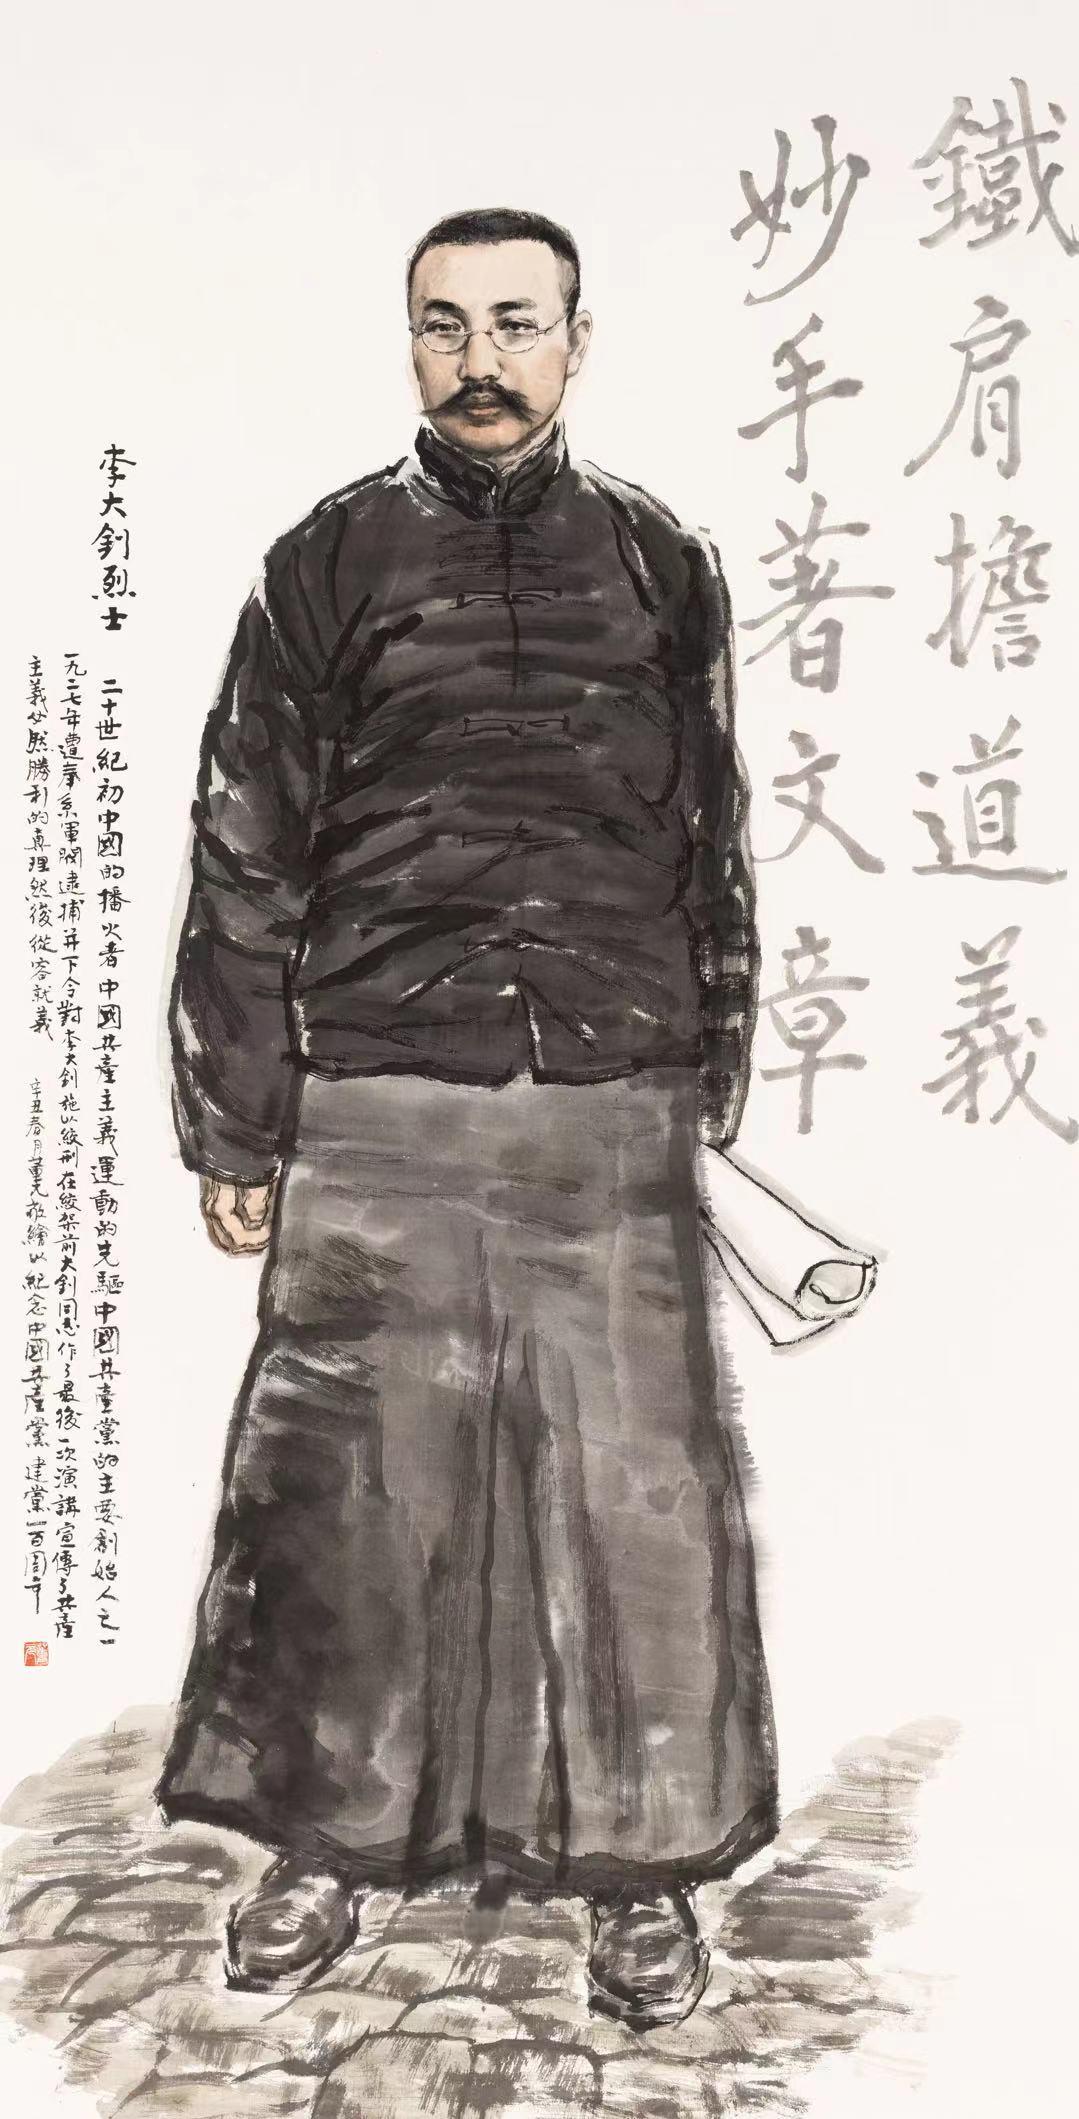 鐵肩擔道義
妙手著文章
李大釗烈士
二十世紀初中國的播火者中國共產主義運動的先驅中國共產黨的主要創始人之一
一九二七年遭奉系軍閥逮捕并下令對李大釗施以絞刑在絞架前大釗同志作了最後一次演講宣傳了共產
主義必然勝利的真理然後從容就義
辛丑春月董 敬繪以紀念中國共產黨建黨一百周年